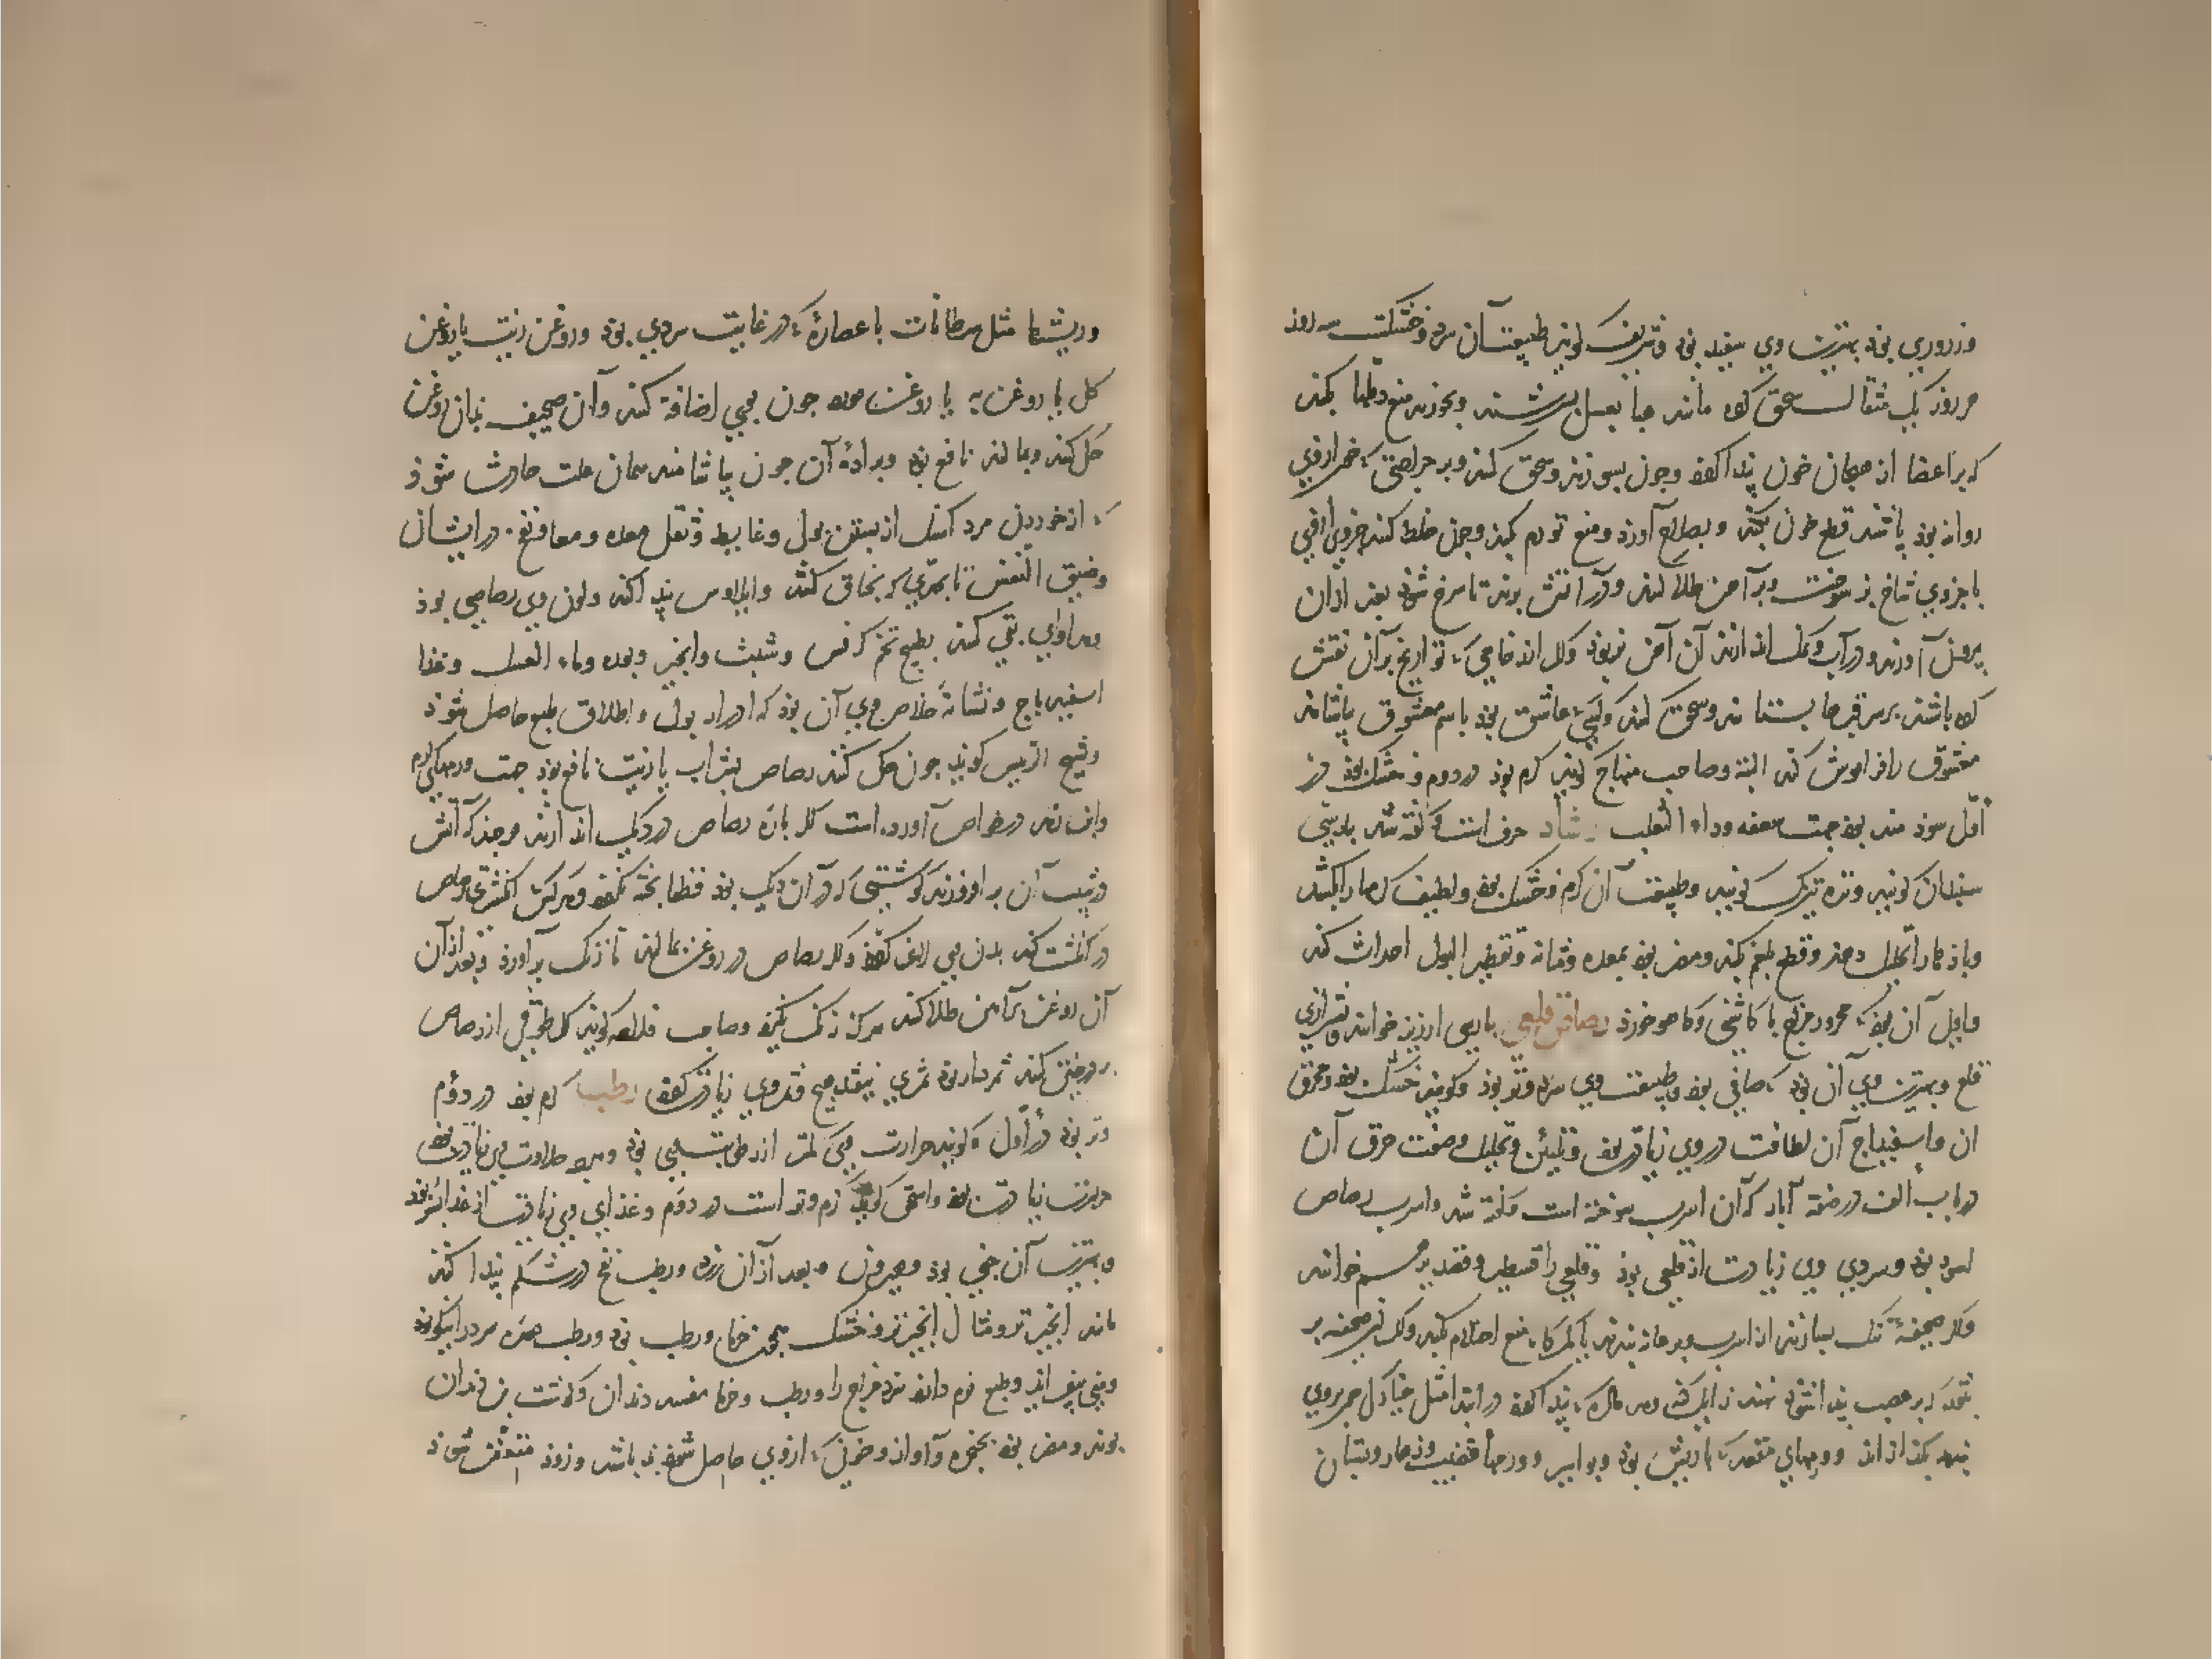 و زردوری بود بهترین وی سفید بود و شریف گویند طبیعت آن سرد و خشکست سه روز
هر روز یک مثقال سحق کرده مانند هبا بعسل بسرشند و بخورند منع دملها بکند
که بر اعضا از هیجان خون پیدا کفد و چون بسوزند و سحق کنند و بر جراحتی که خون از وی
روانه بود پاشند قطع خون بکند و بصلاح آورد و منع تورم بکند و چون خلط کنند جزوی از وی
با جزوی شاخ بز سوخته و بر آهن طلا کنند و در آتش برند تا سرخ شود بعد از آن
بیرون آورند و در آب و نمک اندازند آن آهن نرم بود و اگر اندخامی که تواریخ بر آن نقش
کرده باشند بر سر قبرها بستانند و سحق کنند و کسی که عاشق بود باسم معشوق بیاشامد
معشوق را فراموش کند البته و صاحب منهاج گوید گرم بود در دوم و خشک بود در
اول سودمند بود جهت سعفه و داء الثعلب رشاد حرف است و گفته شد بپارسی
سپندان گویند و تره تیزک گویند و طبیعت آن گرم و خشک بود و لطیف کرمها را بکشد
و بادها را تحلیل دهد و قطع بلغم بکند و مضر بود بمعده و مثانه و تقطیر البول احداث کند
و اولی آن بود که محرور مزاج با کاسنی و کاهو خورد رصاص قلعی پارسی ارزیز خوانند و بشیرازی
قلع و بهترین وی آن بود که صافی بود و طبیعت وی سرد و تر بود و گویند خشک بود و محرق
آن و اسفیداج آن لطافت در وی زیادت بود و تلیین و تحلیل و صفت حرق آن
در باب الف در صفة آبار که آن اسرب سوخته است گفته شد و اسرب رصاص
اسود بود و سردی وی زیادت از قلعی بود و قلعی را قسطیر و قصدیر هم خوانند
و اگر صحیفه تنک بسازند از اسرب و بر خانه بندند یا بر کمرگاه منع احتلام بکند و اگر صحیفه بر
عقد که بر عصب پیدا شود نهند زایل کند و در حال که پیدا کفد در ابتدا مثل خنازیر چون بر وی
نهند بگذازاند و ورمهای مقعد که با ریش بود و بواسیر و ورمهاء قضیب و زهار و پستان
و ریشها مثل سرطانات با عصاره که در غایت سردی بود و روغن زیت یا روغن
گل یا روغن به یا روغن مورد چون بوی اضافه کنند و آن صحیفه بدان روغن
حل کنند و بمالند نافع بود و براده آن چون بیاشامند همان علت حادث شود
که از خوردن مرداسنک از بستن بول و غایط و ثقل معده و معا و نفخ در ایشان
و ضیق النفس تا بحدی که بخناق کشد و ایلاوس پیدا کند و لون وی رصاصی بود
مداوای بقی کنند بطبیخ تخم کرفس و شبث و انجیر و بوره و ماء العسل و غذا
اسفیدباج و نشانه خلاص وی آن بود که ادرار بول و اطلاق طبع حاصل شود
و شیخ الرییس گوید چون حل کنند رصاص بشراب یا زیت نافع بود جهت ورمهای گرم
و ابن زهر در خواص آورده است اگر پاره رصاص در دیک اندازند هر چند که آتش
در شیب آن بر افروزند گوشتی که در آن دیک بود قطعا پخته نکفد و هر کس انگشتری رصاص
در انگشت کند بدن وی لاغر کفد و اگر رصاص در روغن بمالند تا زنک برآورد و بعد از آن
آن روغن بر آهن طلا کنند هرگز زنک نگیرد و صاحب فلاحه گوید اگر طوقی از رصاص
بر درختی کنند ثمردار بود ثمری نیفتد هیچ قدر وی زیادت کفد رطب گرم بود در دوم
و تر بود در اول و گویند حرارت وی کمتر از رطوبت وی بود و هر چه حلاوت وی زیادت بود
حرارت زیادت بود و اسحق گوید گرم و تر است در دوم و غذای وی زیادت از غذا بسر بود
و بهترین آن جنی بود و هیرون و بعد از آن زرد و رطب نفخ در شکم پیدا کند
مانند انجیر تر و مثال انجیر تر و خشک همچون خرما و رطب بود و رطب معده سرد را نیکو بود
و منی بیفزاید و طبع نرم دارد سرد مزاج را و رطب و خرما مفسد دندان و گوشت بن دندان
بوند و مضر بود بحنجره و آواز و خونی که از وی حاصل شود بد باشد و زود متعفن شود